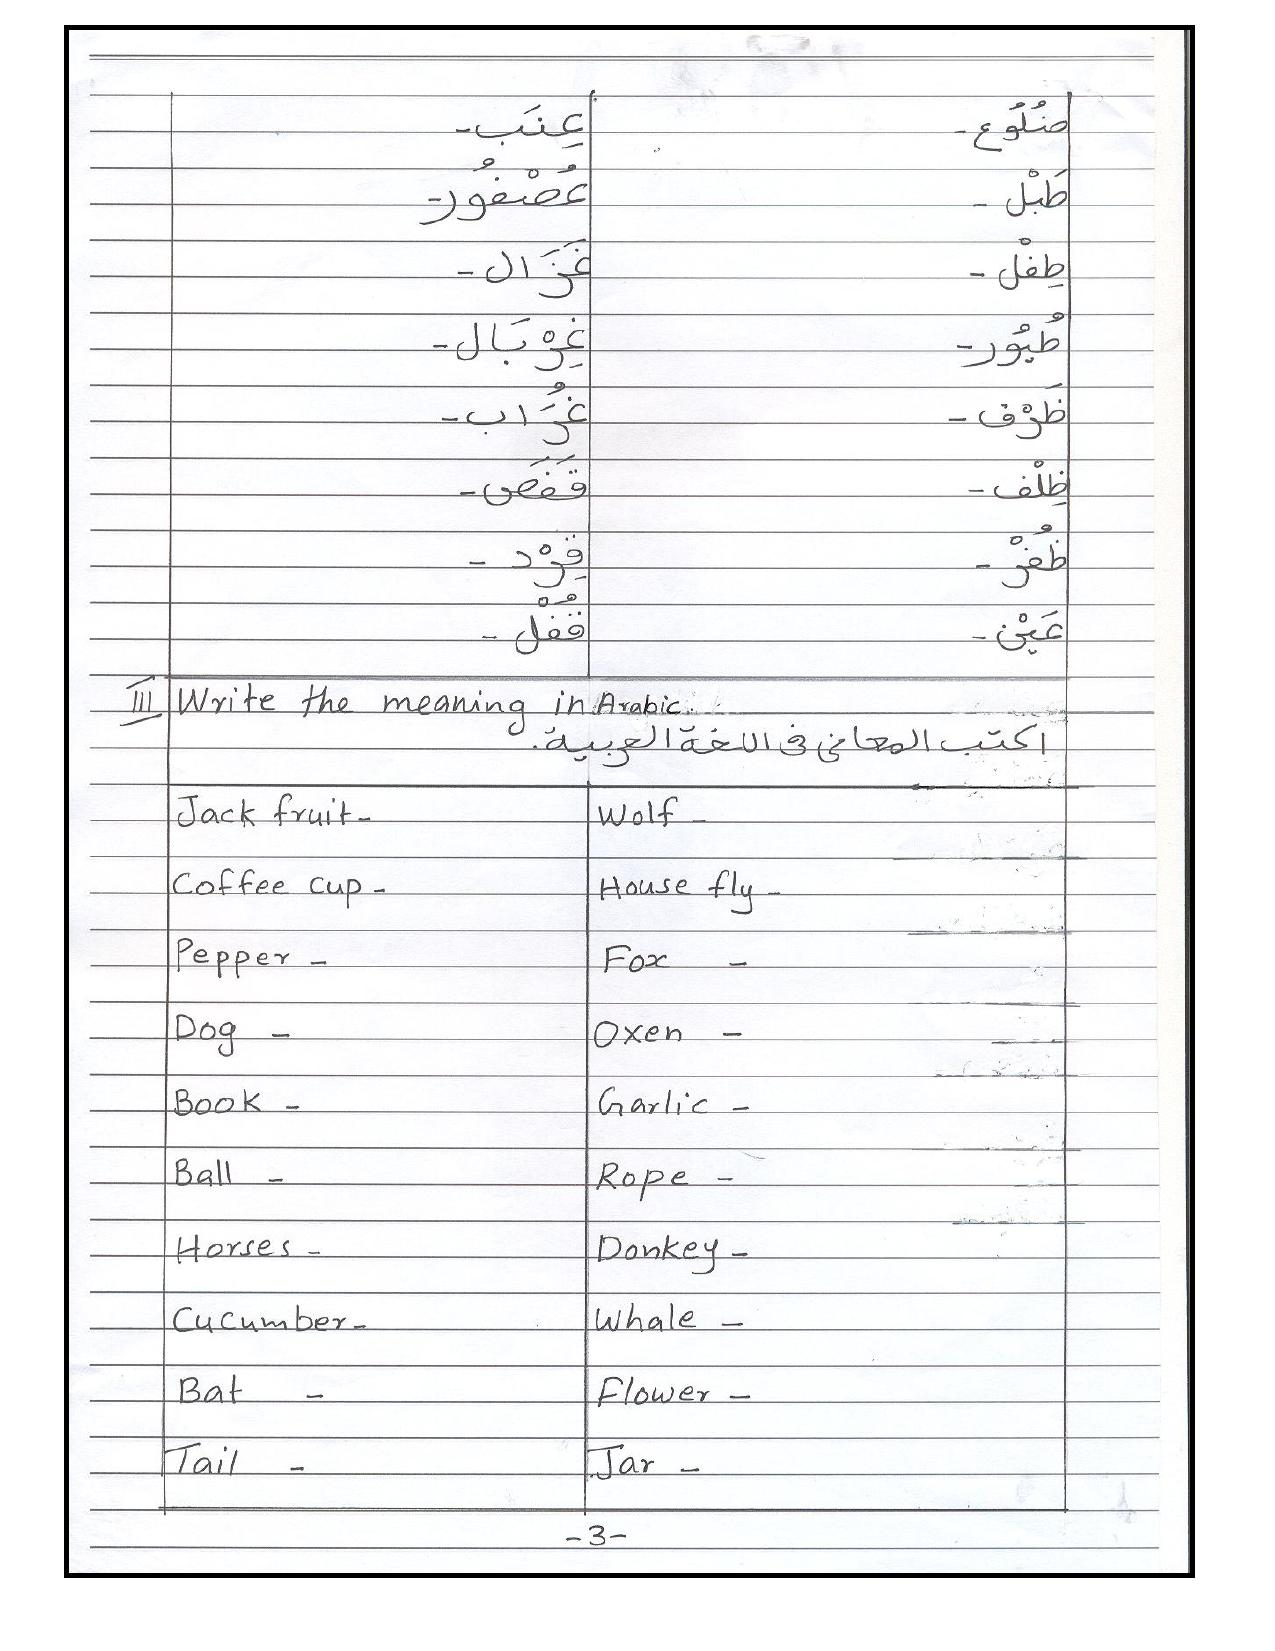 ضُلُوع - عِنَب -
طَبْل - عُصْفُور -
طِفْل - غَزَال -
طُيُور - غِرْبَال -
ظَرْف - غُرَاب -
ظِلْف - قَفَص -
ظُفْر - قِرْد -
عَيْن - قُفْل -
III Write the meaning in Arabic.
اكتب المعاني في اللغة العربية.
Jack fruit - Wolf -
Coffee cup - House fly -
Pepper - Fox -
Dog - Oxen -
Book - Garlic -
Ball - Rope -
Horses - Donkey -
Cucumber - Whale -
Bat - Flower -
Tail - Jar -
-3-